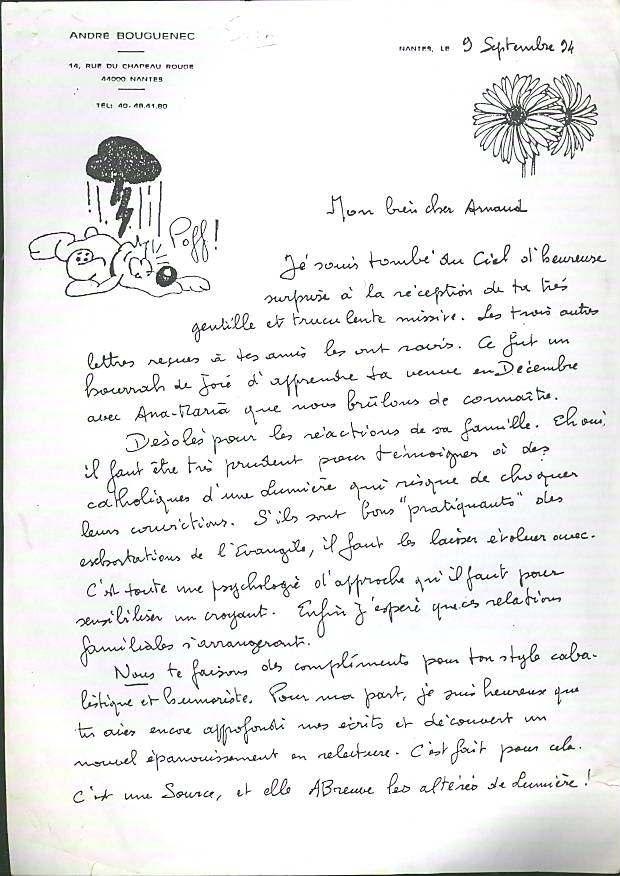 ANDRÉ BOUGUENEC
14, RUE DU CHAPEAU ROUGE
44000 NANTES
TÉL: 40.48.41.80
NANTES, LE 9 Septembre 94
Poff!
Mon bien cher Arnaud
Je suis tombé du Ciel d'heureuse
surprise à la réception de ta très
gentille et truculente missive. Les trois autres
lettres reçues à tes amis les ont ravis. Ce fut un
hourrah de joie d'apprendre ta venue en Décembre
avec Ana-Maria que nous brûlons de connaître.
Désolés pour les réactions de sa famille. Eh oui,
il faut être très prudent pour témoigner à des
catholiques d'une Lumière qui risque de choquer
leurs convictions. S'ils sont bons "pratiquants" des
exhortations de l'Evangile, il faut les laisser évoluer avec.
C'est toute une psychologie d'approche qu'il faut pour
sensibiliser un croyant. Enfin j'espère que ces relations
familiales s'arrangeront.
Nous te faisons des compliments pour ton style caba-
listique et humoriste. Pour ma part, je suis heureux que
tu aies encore approfondi mes écrits et découvert un
nouvel épanouissement en relecture. C'est fait pour cela.
C'est une Source, et elle ABreuve les altérés de Lumière!